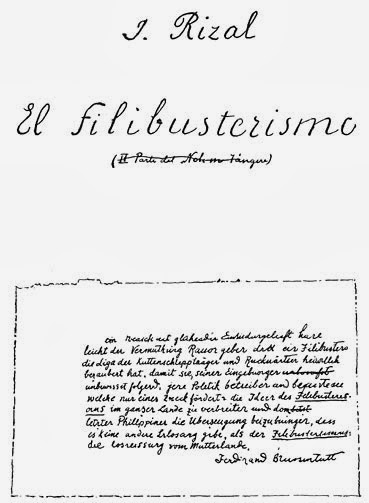 J. Rizal
El Filibusterismo
(II Parte del Noli me tángere)
ein Mensch mit
leicht der Vermuthung Raum geber dass ein Filibustero
die der Kuttenschleppträger und Rückwärtser heimlich
bezaubert hat, damit sie, seiner
unbewusst folgend, jene Politik
welche nur einen Zweck fördert: die Ideen des Filibusteris-
mus im ganzen Lande zu verbreiten und den
letzten Philippiner die Überzeugung beizubringen, dass
es keine andere Erlösung gibt, als der Filibusterismus:
die Losreissung vom Mutterlande.
Ferdinand Blumentritt